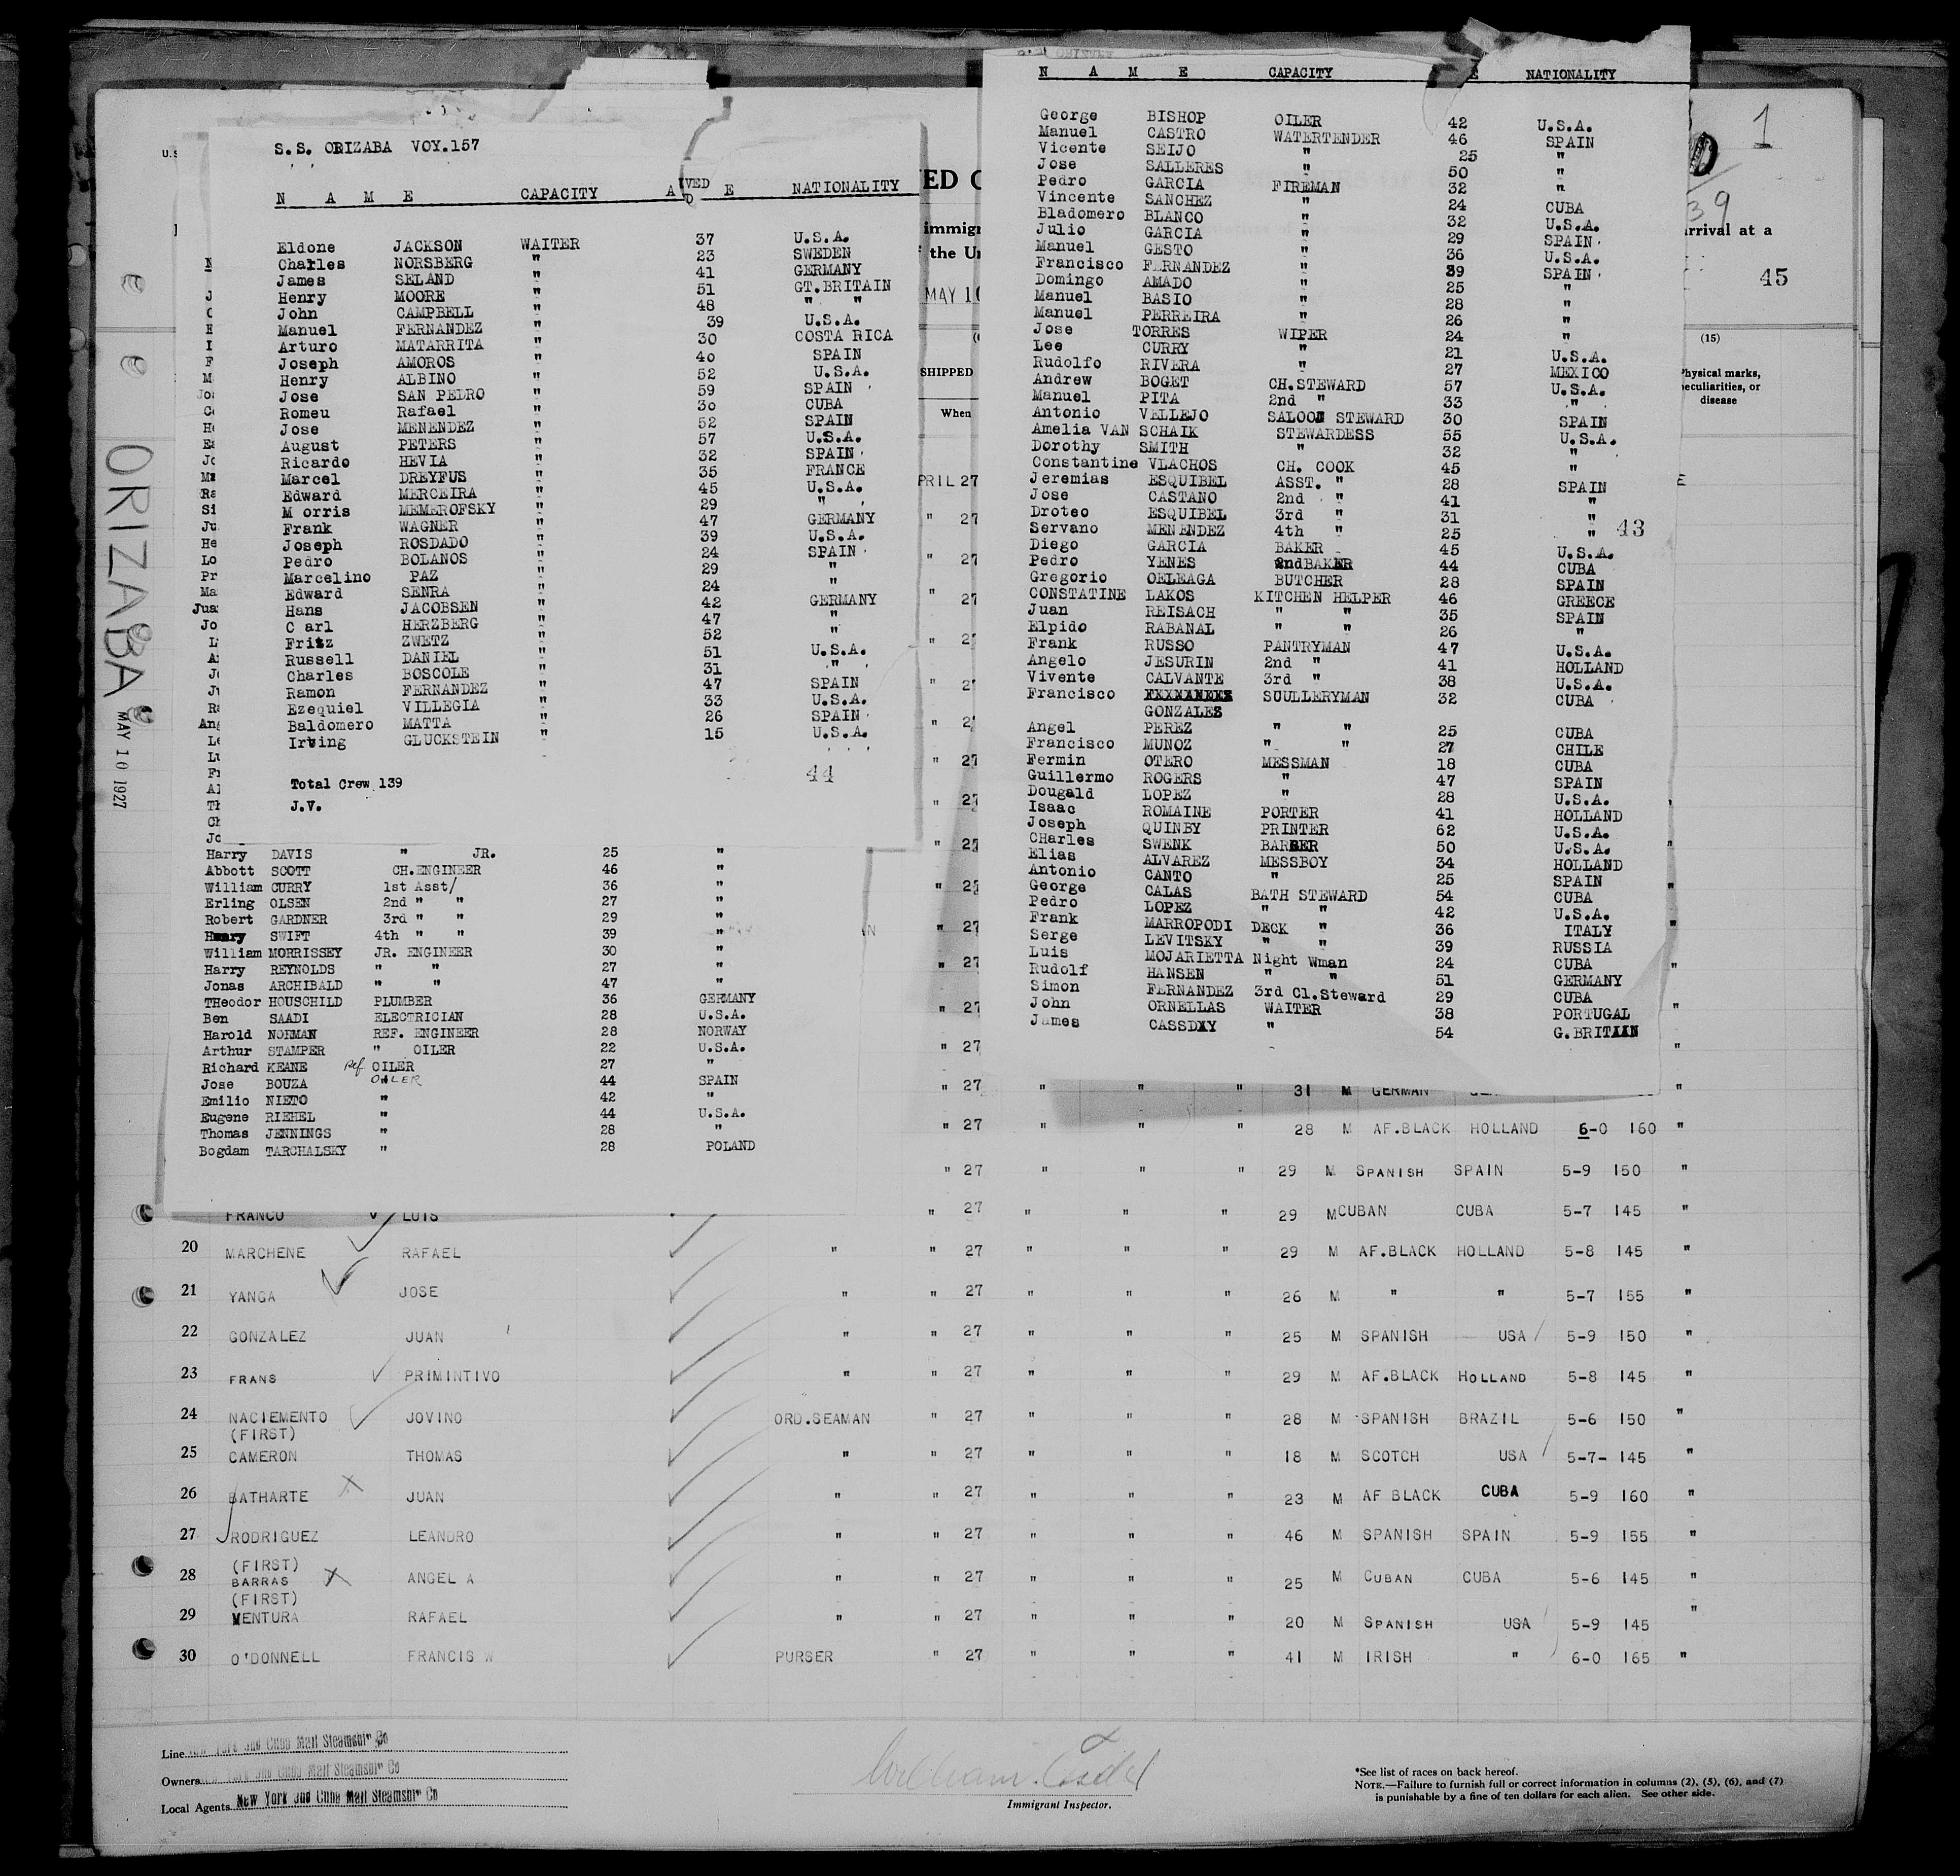 S.S. ORIZABA VOY.157
N A M E CAPACITY A E NATIONALITY
Eldone JACKSON WAITER 37 U.S.A.
Charles NORSBERG " 23 SWEDEN
James SELAND " 41 GERMANY
Henry MOORE " 51 GT.BRITAIN
John CAMPBELL " 48 " "
Manuel FERNANDEZ " 39 U.S.A.
Arturo MATARRITA " 30 COSTA RICA
Joseph AMOROS " 40 SPAIN
Henry ALBINO " 52 U.S.A.
Jose SAN PEDRO " 59 SPAIN
Romeu Rafael " 30 CUBA
Jose MENENDEZ " 52 SPAIN
August PETERS " 57 U.S.A.
Ricardo HEVIA " 32 SPAIN
Marcel DREYFUS " 35 FRANCE
Edward MERCEIRA " 45 U.S.A.
M orris MEMEROFSKY " 29 "
Frank WAGNER " 47 GERMANY
Joseph ROSDADO " 39 U.S.A.
Pedro BOLANOS " 24 SPAIN
Marcelino PAZ " 29 "
Edward SENRA " 24 "
Hans JACOBSEN " 42 GERMANY
C arl HERZBERG " 47 "
Fritz ZWETZ " 52 "
Russell DANIEL " 51 U.S.A.
Charles BOSCOLE " 31 "
Ramon FERNANDEZ " 47 SPAIN
Ezequiel VILLEGIA " 33 U.S.A.
Baldomero MATTA " 26 SPAIN
Irving GLUCKSTEIN " 15 U.S.A.
44
Total Crew 139
J.V.
Harry DAVIS " JR. 25 "
Abbott SCOTT CH.ENGINEER 46 "
William CURRY 1st Asst/ 36 "
Erling OLSEN 2nd " " 27 "
Robert GARDNER 3rd " " 29 "
Henry SWIFT 4th " " 39 "
William MORRISSEY JR. ENGINEER 30 "
Harry REYNOLDS " " 27 "
Jonas ARCHIBALD " " 47 "
THeodor HOUSCHILD PLUMBER 36 GERMANY
Ben SAADI ELECTRICIAN 28 U.S.A.
Harold NORMAN REF. ENGINEER 28 NORWAY
Arthur STAMPER " OILER 22 U.S.A.
Richard KEANE Ref OILER 27 "
Jose BOUZA OILER 44 SPAIN
Emilio NIETO " 42 "
Eugene RIEHEL " 44 U.S.A.
Thomas JENNINGS " 28 "
Bogdam TARCHALSKY " 28 POLAND
N A M E CAPACITY E NATIONALITY
George BISHOP OILER 42 U.S.A.
Manuel CASTRO WATERTENDER 46 SPAIN
Vicente SEIJO " 25 "
Jose SALLERES " 50 "
Pedro GARCIA FIREMAN 32 "
Vincente SANCHEZ " 24 CUBA
Bladomero BLANCO " 32 U.S.A.
Julio GARCIA " 29 SPAIN
Manuel GESTO " 36 U.S.A.
Francisco FERNANDEZ " 39 SPAIN
Domingo AMADO " 25 "
Manuel BASIO " 28 "
Manuel PERREIRA " 26 "
Jose TORRES WIPER 24 "
Lee CURRY " 21 U.S.A.
Rudolfo RIVERA " 27 MEXICO
Andrew BOGET CH.STEWARD 57 U.S.A.
Manuel PITA 2nd " 33 "
Antonio VELLEJO SALOON STEWARD 30 SPAIN
Amelia VAN SCHAIK STEWARDESS 55 U.S.A.
Dorothy SMITH " 32 "
Constantine VLACHOS CH. COOK 45 "
Jeremias ESQUIBEL ASST. " 28 SPAIN
Jose CASTANO 2nd " 41 "
Droteo ESQUIBEL 3rd " 31 "
Servano MENENDEZ 4th " 25 " 43
Diego GARCIA BAKER 45 U.S.A.
Pedro YENES 2ndBAKER 44 CUBA
Gregorio OELEAGA BUTCHER 28 SPAIN
CONSTATINE LAKOS KITCHEN HELPER 46 GREECE
Juan REISACH " " 35 SPAIN
Elpido RABANAL " " 26 "
Frank RUSSO PANTRYMAN 47 U.S.A.
Angelo JESURIN 2nd " 41 HOLLAND
Vivente CALVANTE 3rd " 38 U.S.A.
Francisco SUULLERYMAN 32 CUBA
GONZALES
Angel PEREZ " " 25 CUBA
Francisco MUNOZ " " 27 CHILE
Fermin OTERO MESSMAN 18 CUBA
Guillermo ROGERS " 47 SPAIN
Dougald LOPEZ " 28 U.S.A.
Isaac ROMAINE PORTER 41 HOLLAND
Joseph QUINBY PRINTER 62 U.S.A.
CHarles SWENK BARBER 50 U.S.A.
Elias ALVAREZ MESSBOY 34 HOLLAND
Antonio CANTO " 25 SPAIN
George CALAS BATH STEWARD 54 CUBA
Pedro LOPEZ " " 42 U.S.A.
Frank MARROPODI DECK " 36 ITALY
Serge LEVITSKY " " 39 RUSSIA
Luis MOJARIETTA Night Wman 24 CUBA
Rudolf HANSEN " " 51 GERMANY
Simon FERNANDEZ 3rd Cl.Steward 29 CUBA
John ORNELLAS WAITER 38 PORTUGAL
James CASSDXY " 54 G.BRITAIN
1
39
ED
immigr
rrival at a
the Un
MAY 10
45
(15)
SHIPPED
When
Physical marks,
peculiarities, or
disease
PRIL 27
ORIZABA
MAY 10 1927
" 27 " " " 31 M GERMAN
" 27 " " " 28 M AF.BLACK HOLLAND 6-0 160 "
" 27 " " " 29 M SPANISH SPAIN 5-9 150 "
FRANCO LUIS " 27 " " " 29 M CUBAN CUBA 5-7 145 "
20 MARCHENE RAFAEL " " 27 " " " 29 M AF.BLACK HOLLAND 5-8 145 "
21 YANGA JOSE " " 27 " " " 26 M " " 5-7 155 "
22 GONZALEZ JUAN " " 27 " " " 25 M SPANISH USA 5-9 150 "
23 FRANS PRIMINTIVO " " 27 " " " 29 M AF.BLACK HOLLAND 5-8 145 "
24 NACIEMENTO JOVINO ORD.SEAMAN " 27 " " " 28 M SPANISH BRAZIL 5-6 150 "
(FIRST)
25 CAMERON THOMAS " " 27 " " " 18 M SCOTCH USA 5-7- 145 "
26 BATHARTE JUAN " " 27 " " " 23 M AF BLACK CUBA 5-9 160 "
27 RODRIGUEZ LEANDRO " " 27 " " " 46 M SPANISH SPAIN 5-9 155 "
(FIRST)
28 BARRAS ANGEL A " " 27 " " " 25 M CUBAN CUBA 5-6 145 "
(FIRST)
29 VENTURA RAFAEL " " 27 " " " 20 M SPANISH USA 5-9 145 "
30 O'DONNELL FRANCIS W PURSER " 27 " " " 41 M IRISH " 6-0 165 "
Line New York and Cuba Mail Steamship Co
Owners New York and Cuba Mail Steamship Co
Local Agents New York and Cuba Mail Steamship Co
William
Immigrant Inspector.
*See list of races on back hereof.
NOTE.—Failure to furnish full or correct information in columns (2), (5), (6), and (7)
is punishable by a fine of ten dollars for each alien. See other side.